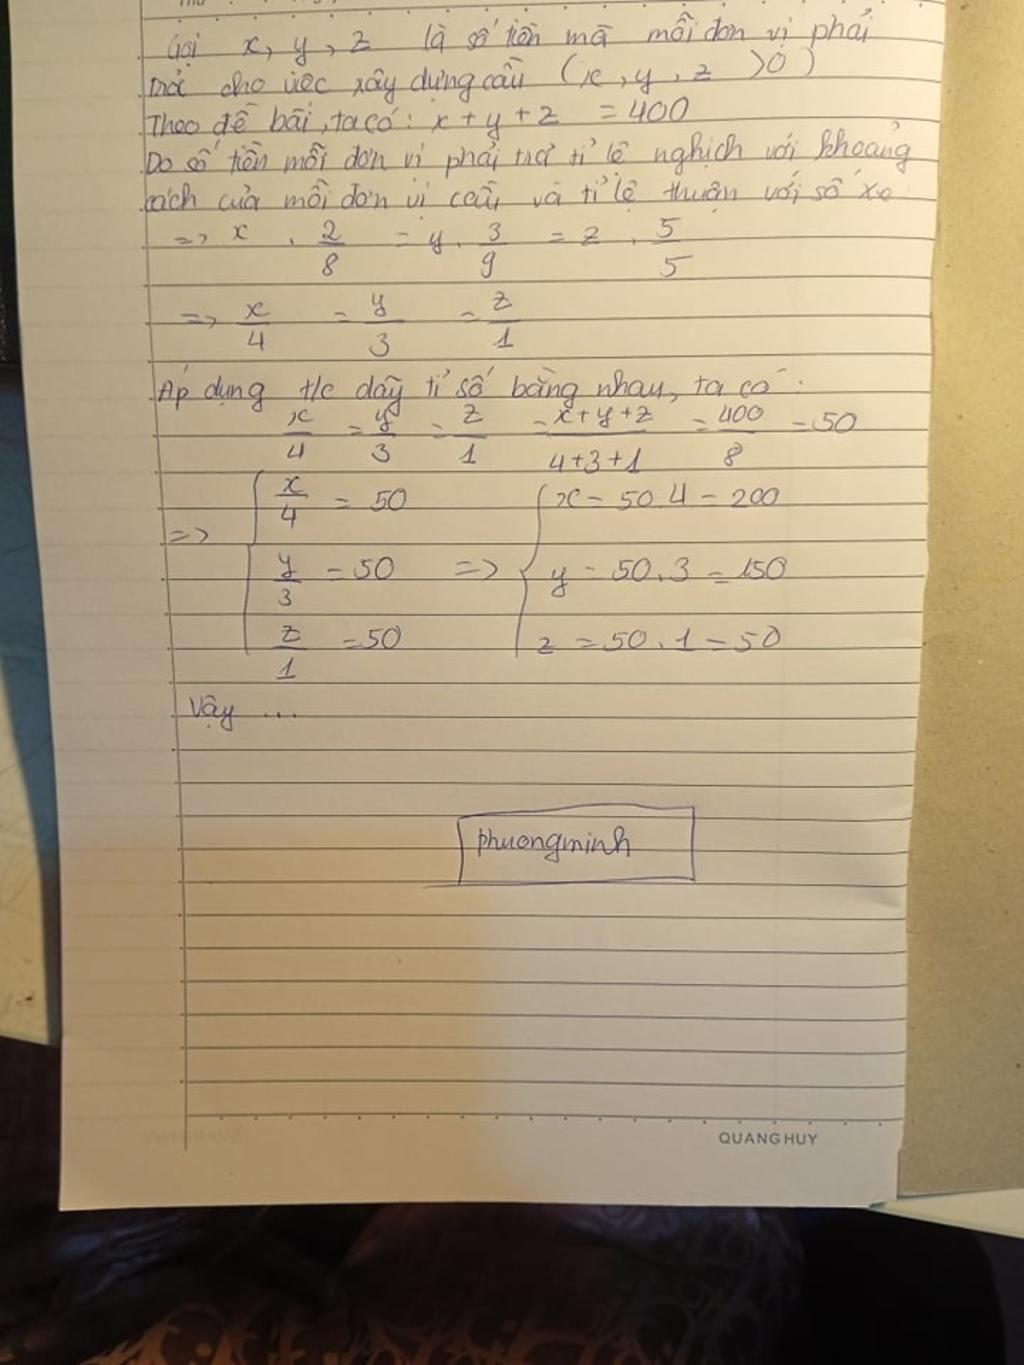 Gọi x, y, z là số tiền mà mỗi đơn vị phải
trả cho việc xây dựng cầu (x, y, z >0)
Theo đề bài, ta có: x + y + z = 400
Do số tiền mỗi đơn vị phải trả tỉ lệ nghịch với khoảng
cách của mỗi đơn vị cầu và tỉ lệ thuận với số xe
=> x . 2/8 = y . 3/9 = z . 5/5
=> x/4 = y/3 = z/1
Áp dụng t/c dãy tỉ số bằng nhau, ta có:
x/4 = y/3 = z/1 = x+y+z/4+3+1 = 400/8 = 50
=> { x/4 = 50 { x = 50.4 = 200
y/3 = 50 => y = 50.3 = 150
z/1 = 50 z = 50.1 = 50
Vậy ...
phuongminh
QUANG HUY